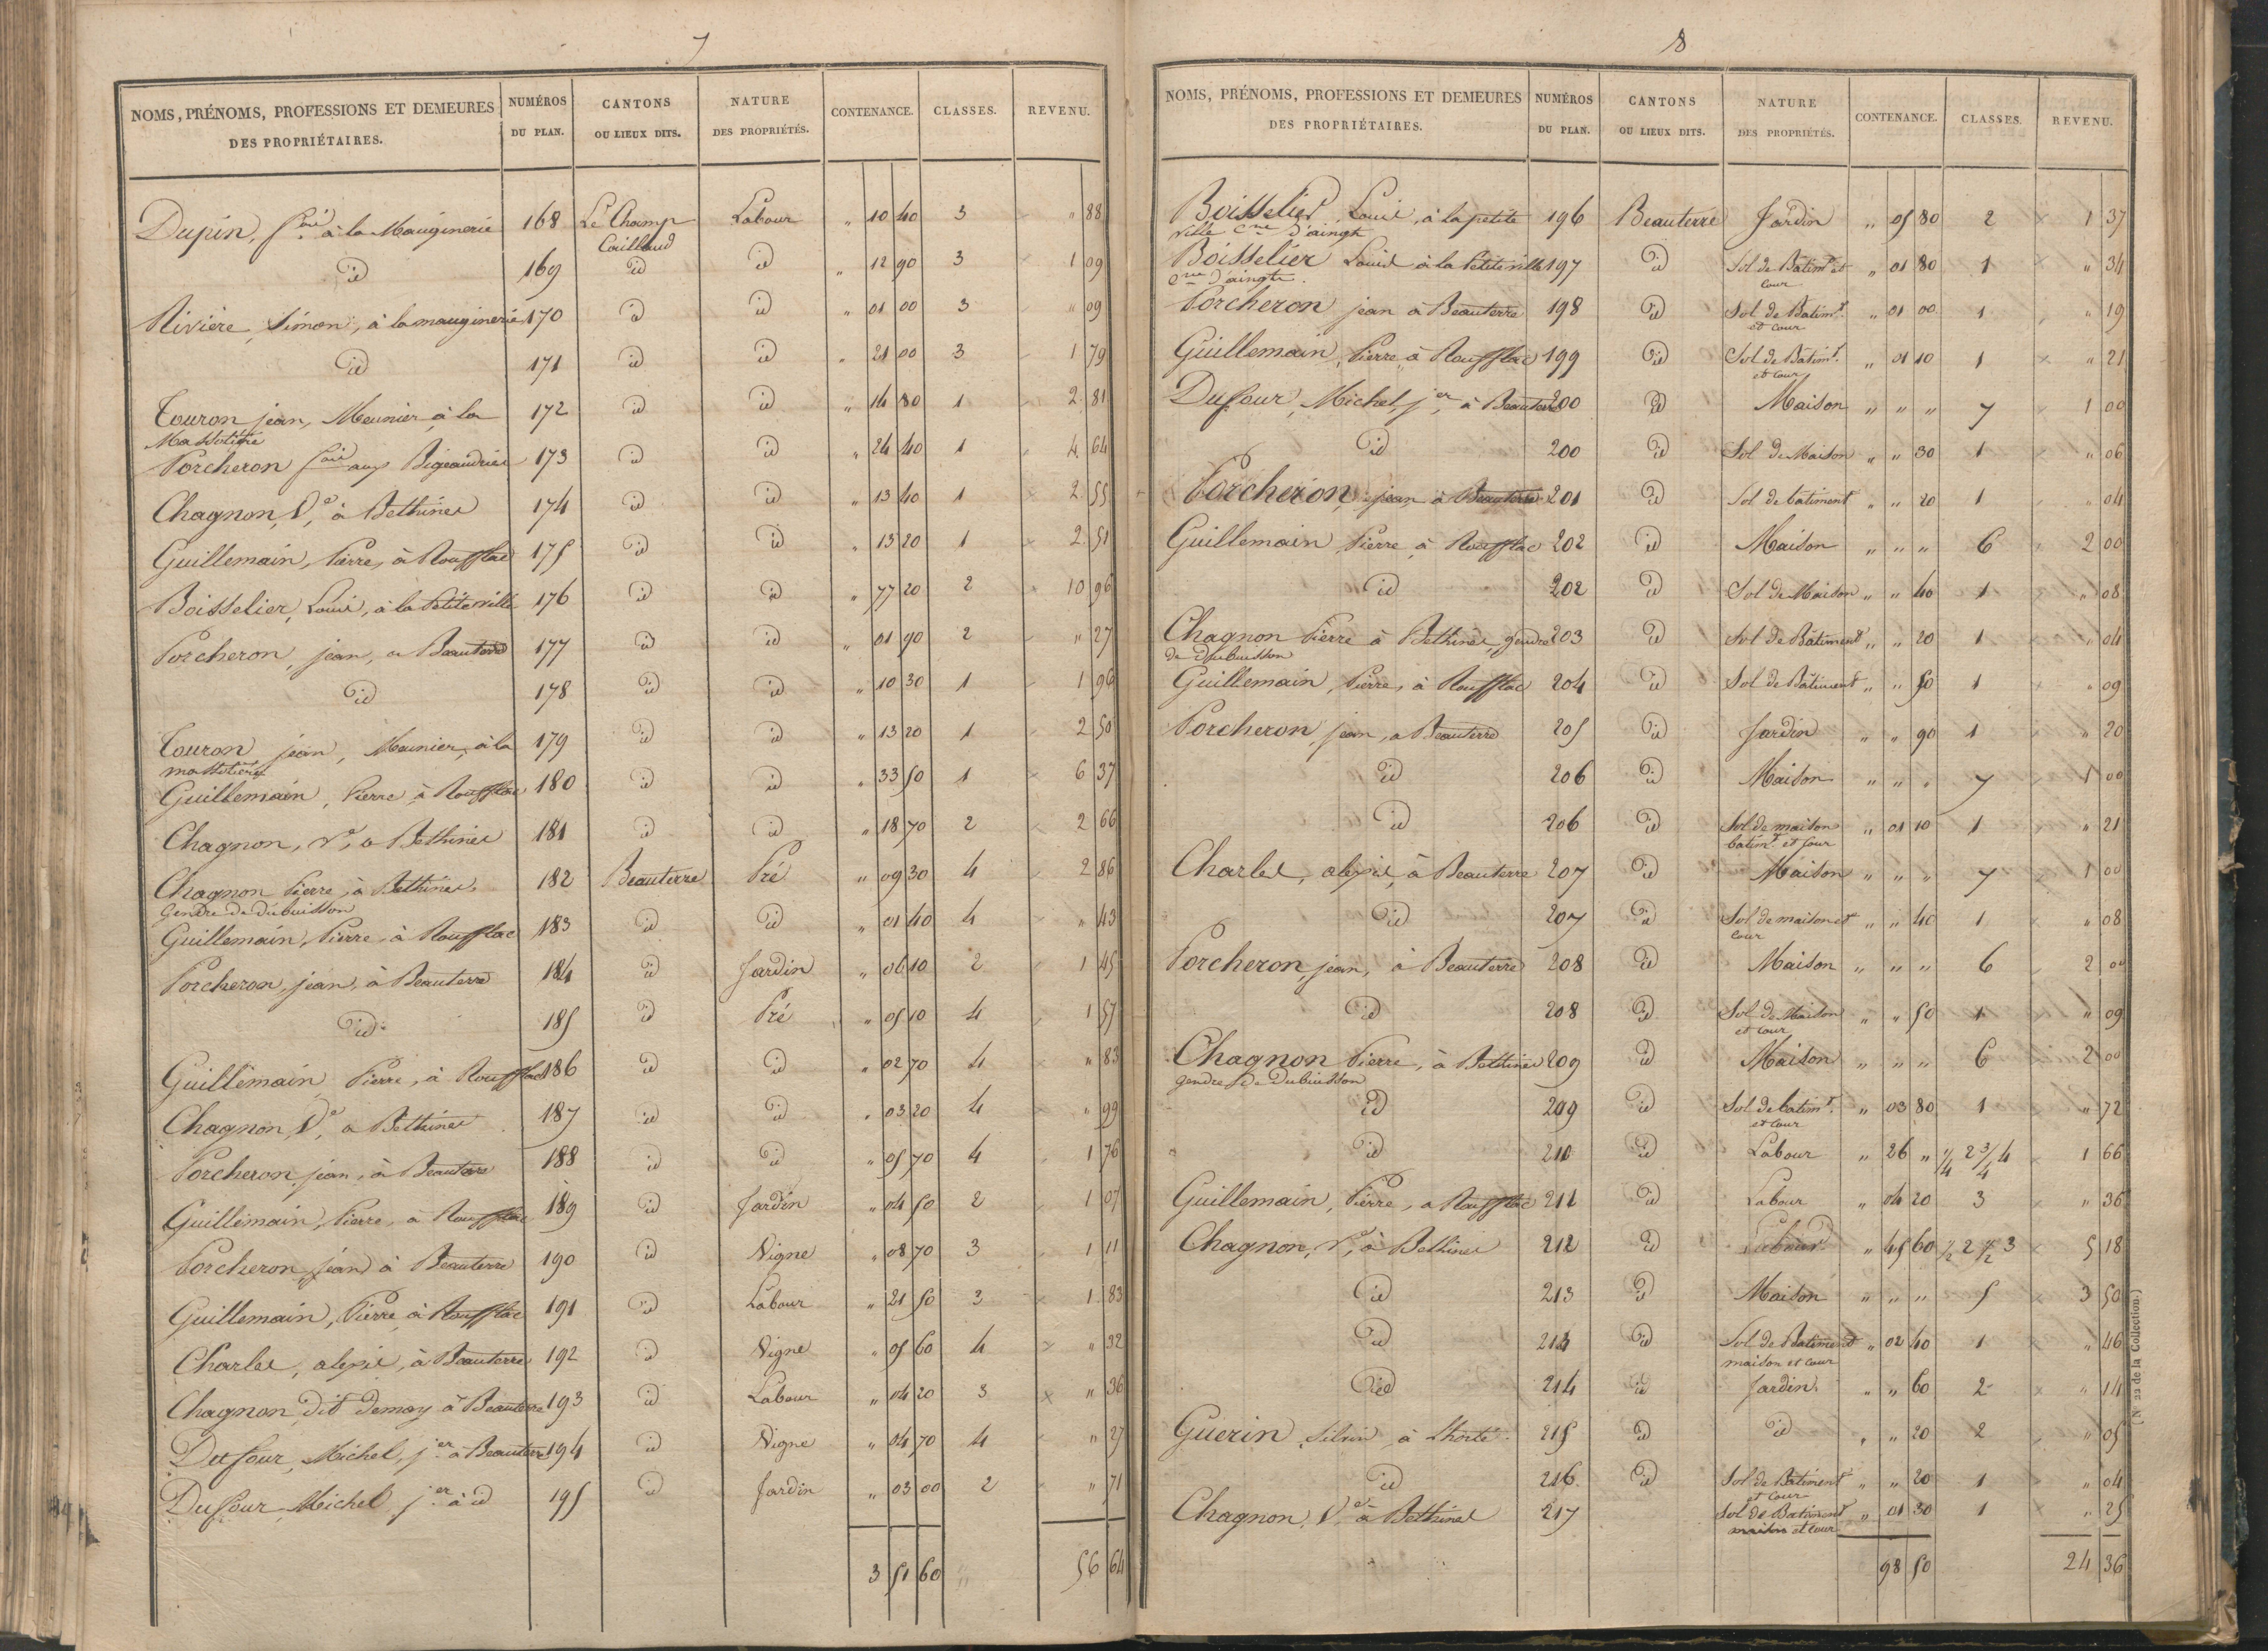 7
NOMS, PRÉNOMS, PROFESSIONS ET DEMEURES DES PROPRIÉTAIRES. NUMÉROS DU PLAN. CANTONS OU LIEUX DITS. NATURE DES PROPRIÉTÉS. CONTENANCE. CLASSES. REVENU.
Dupin, f.ois à la Mauginerie 168 Le Champ Labour " 10 40 3 " 88
Caillaud
id 169 id id " 12 90 3 1 09
Rivière, Simon, à la mauginerie 170 id id " 01 00 3 " 09
id 171 id id " 21 00 3 1 79
Touron jean, Meunier à la 172 id id " 14 80 1 2 81
Massotière
Porcheron f.ois aux Bigeaudries 173 id id " 24 40 1 4 64
Chagnon, V.e à Bethines 174 id id " 13 40 1 2 55
Guillemain, Pierre, à Roufflac 175 id id " 13 20 1 2 51
Boisselier, Louis, à la Petite ville 176 id id " 77 20 2 10 96
Porcheron, jean, a Beauterre 177 id id " 01 90 2 " 27
id 178 id id " 10 30 1 1 96
Touron jean, Meunier, à la 179 id id " 13 20 1 2 50
massotière
Guillemain, Pierre à Roufflac 180 id id " 33 50 1 6 37
Chagnon, v.e, a Bethines 181 id id " 18 70 2 2 66
Chagnon Pierre, à Bethines 182 Beauterre Pré " 09 30 4 2 86
Gendre de dubuisson
Guillemain, Pierre, à Roufflac 183 id id " 01 40 4 " 43
Porcheron, jean, à Beauterre 184 id Jardin " 06 10 2 1 45
id 185 id Pré " 05 10 4 1 57
Guillemain Pierre, à Roufflac 186 id id " 02 70 4 " 83
Chagnon V.e, a Bethines 187 id id " 03 20 4 " 99
Porcheron jean, à Beauterre 188 id id " 05 70 4 1 76
Guillemain, Pierre, à Roufflac 189 id Jardin " 04 50 2 1 07
Porcheron, jean à Beauterre 190 id Vigne " 08 70 3 1 11
Guillemain, Pierre à Roufflac 191 id Labour " 21 50 3 1 83
Charles, alexis, à Beauterre 192 id Vigne " 05 60 4 " 32
Chagnon dit demay à Beauterre 193 id Labour " 04 20 3 " 36
Dufour, Michel, j.er à Beauterre 194 id Vigne " 04 70 4 " 27
Dufour Michel j.er à id 195 id Jardin " 03 00 2 " 71
3 51 60 " 56 64
8
NOMS, PRÉNOMS, PROFESSIONS ET DEMEURES DES PROPRIÉTAIRES. NUMÉROS DU PLAN. CANTONS OU LIEUX DITS. NATURE DES PROPRIÉTÉS. CONTENANCE. CLASSES. REVENU.
Boisselier Louis, à la petite 196 Beauterre Jardin " 05 80 2 1 37
ville c.ne d'aingts
Boisselier Louis à la Petite ville 197 id Sol de Batim.t et " 01 80 1 " 34
c.ne d'aingts. cour
Porcheron jean à Beauterre 198 id Sol de Batim.t " 01 00 1 " 19
et cour
Guillemain, Pierre à Roufflac 199 id Sol de Batim.t " 01 10 1 " 21
et cour
Dufour, Michel, j.er, à Beauterre 200 id Maison " " " 7 1 00
id 200 id Sol de Maison " " 30 1 " 06
Porcheron, jean, à Beauterre 201 id Sol de batiment " " 20 1 " 04
Guillemain Pierre à Roufflac 202 id Maison " " " 6 2 00
id 202 id Sol de Maison " " 40 1 " 08
Chagnon Pierre à Bethines, gendre 203 id Sol de Bâtiment " " 20 1 " 04
de dubuisson
Guillemain, Pierre, à Roufflac 204 id Sol de Bâtiment " " 50 1 " 09
Porcheron, jean, a Beauterre 205 id Jardin " " 90 1 " 20
id 206 id Maison " " " 7 1 00
id 206 id Sol de maison " 01 10 1 " 21
batim.t et four
Charles, alexis, à Beauterre 207 id Maison " " " 7 1 00
id 207 id Sol de maison et " " 40 1 " 08
cour
Porcheron jean, à Beauterre 208 id Maison " " " 6 2 00
id 208 id Sol de Maison " " 50 1 " 09
et cour
Chagnon Pierre, à Bethines 209 id Maison " " " 6 2 00
gendre de Dubuisson
id 209 id Sol de batim.t " 03 80 1 " 72
et cour
id 210 id Labour " 26 " 1/4 2 3/4 4 1 66
Guillemain, Pierre, a Roufflac 211 id Labour " 04 20 3 " 36
Chagnon, v.e, à Bethines 212 id Labour " 45 60 1/2 2 1/2 3 5 18
id 213 id Maison " " " 5 3 50
id 213 id Sol de Batiment " 02 40 1 " 46
maison et cour
id 214 id Jardin " " 60 2 " 14
Guerin, Silvin, à Lhorte 215 id id " " 20 2 " 05
id 216 id Sol de Batiment " " 20 1 " 04
et cour
Chagnon V.e à Bethines 217 Sol de Batiment " 01 30 1 " 25
maison et cour
98 50 24 36
(N° 22 de la Collection.)